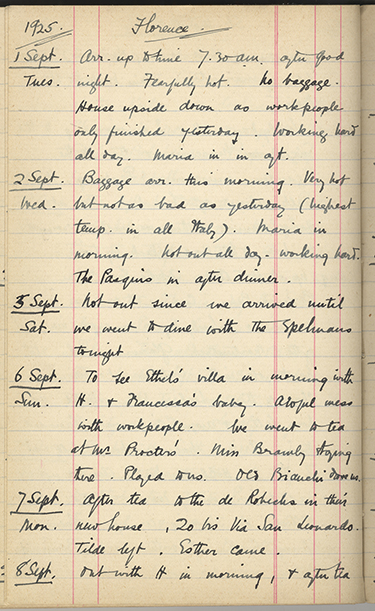 1925. Florence.
1 Sept. Arr. up to time 7.30 am. after good
Tues. night. Fearfully hot. No baggage.
House upside down as workpeople
only finished yesterday. Working hard
all day. Maria in in aft.
2 Sept. Baggage arr. this morning. Very hot
Wed. but not as bad as yesterday (highest
temp. in all Italy). Maria in
morning. Not out all day - working hard.
The Pasquis in after dinner.
5 Sept. Not out since we arrived until
Sat. we went to dine with the Spelmans
tonight
6 Sept. To see Ethel's villa in morning with
Sun. H. & Francesca's baby. Awful mess
with workpeople. We went to tea
at Mrs Procter's. Miss Bramly
there. Played to us. Old Bianchi
7 Sept. After tea to the de Robecks in their
Mon. new house, 20 bis Via San Leonardo.
Tilde left. Esther came.
8 Sept. Out with H in morning, & after tea